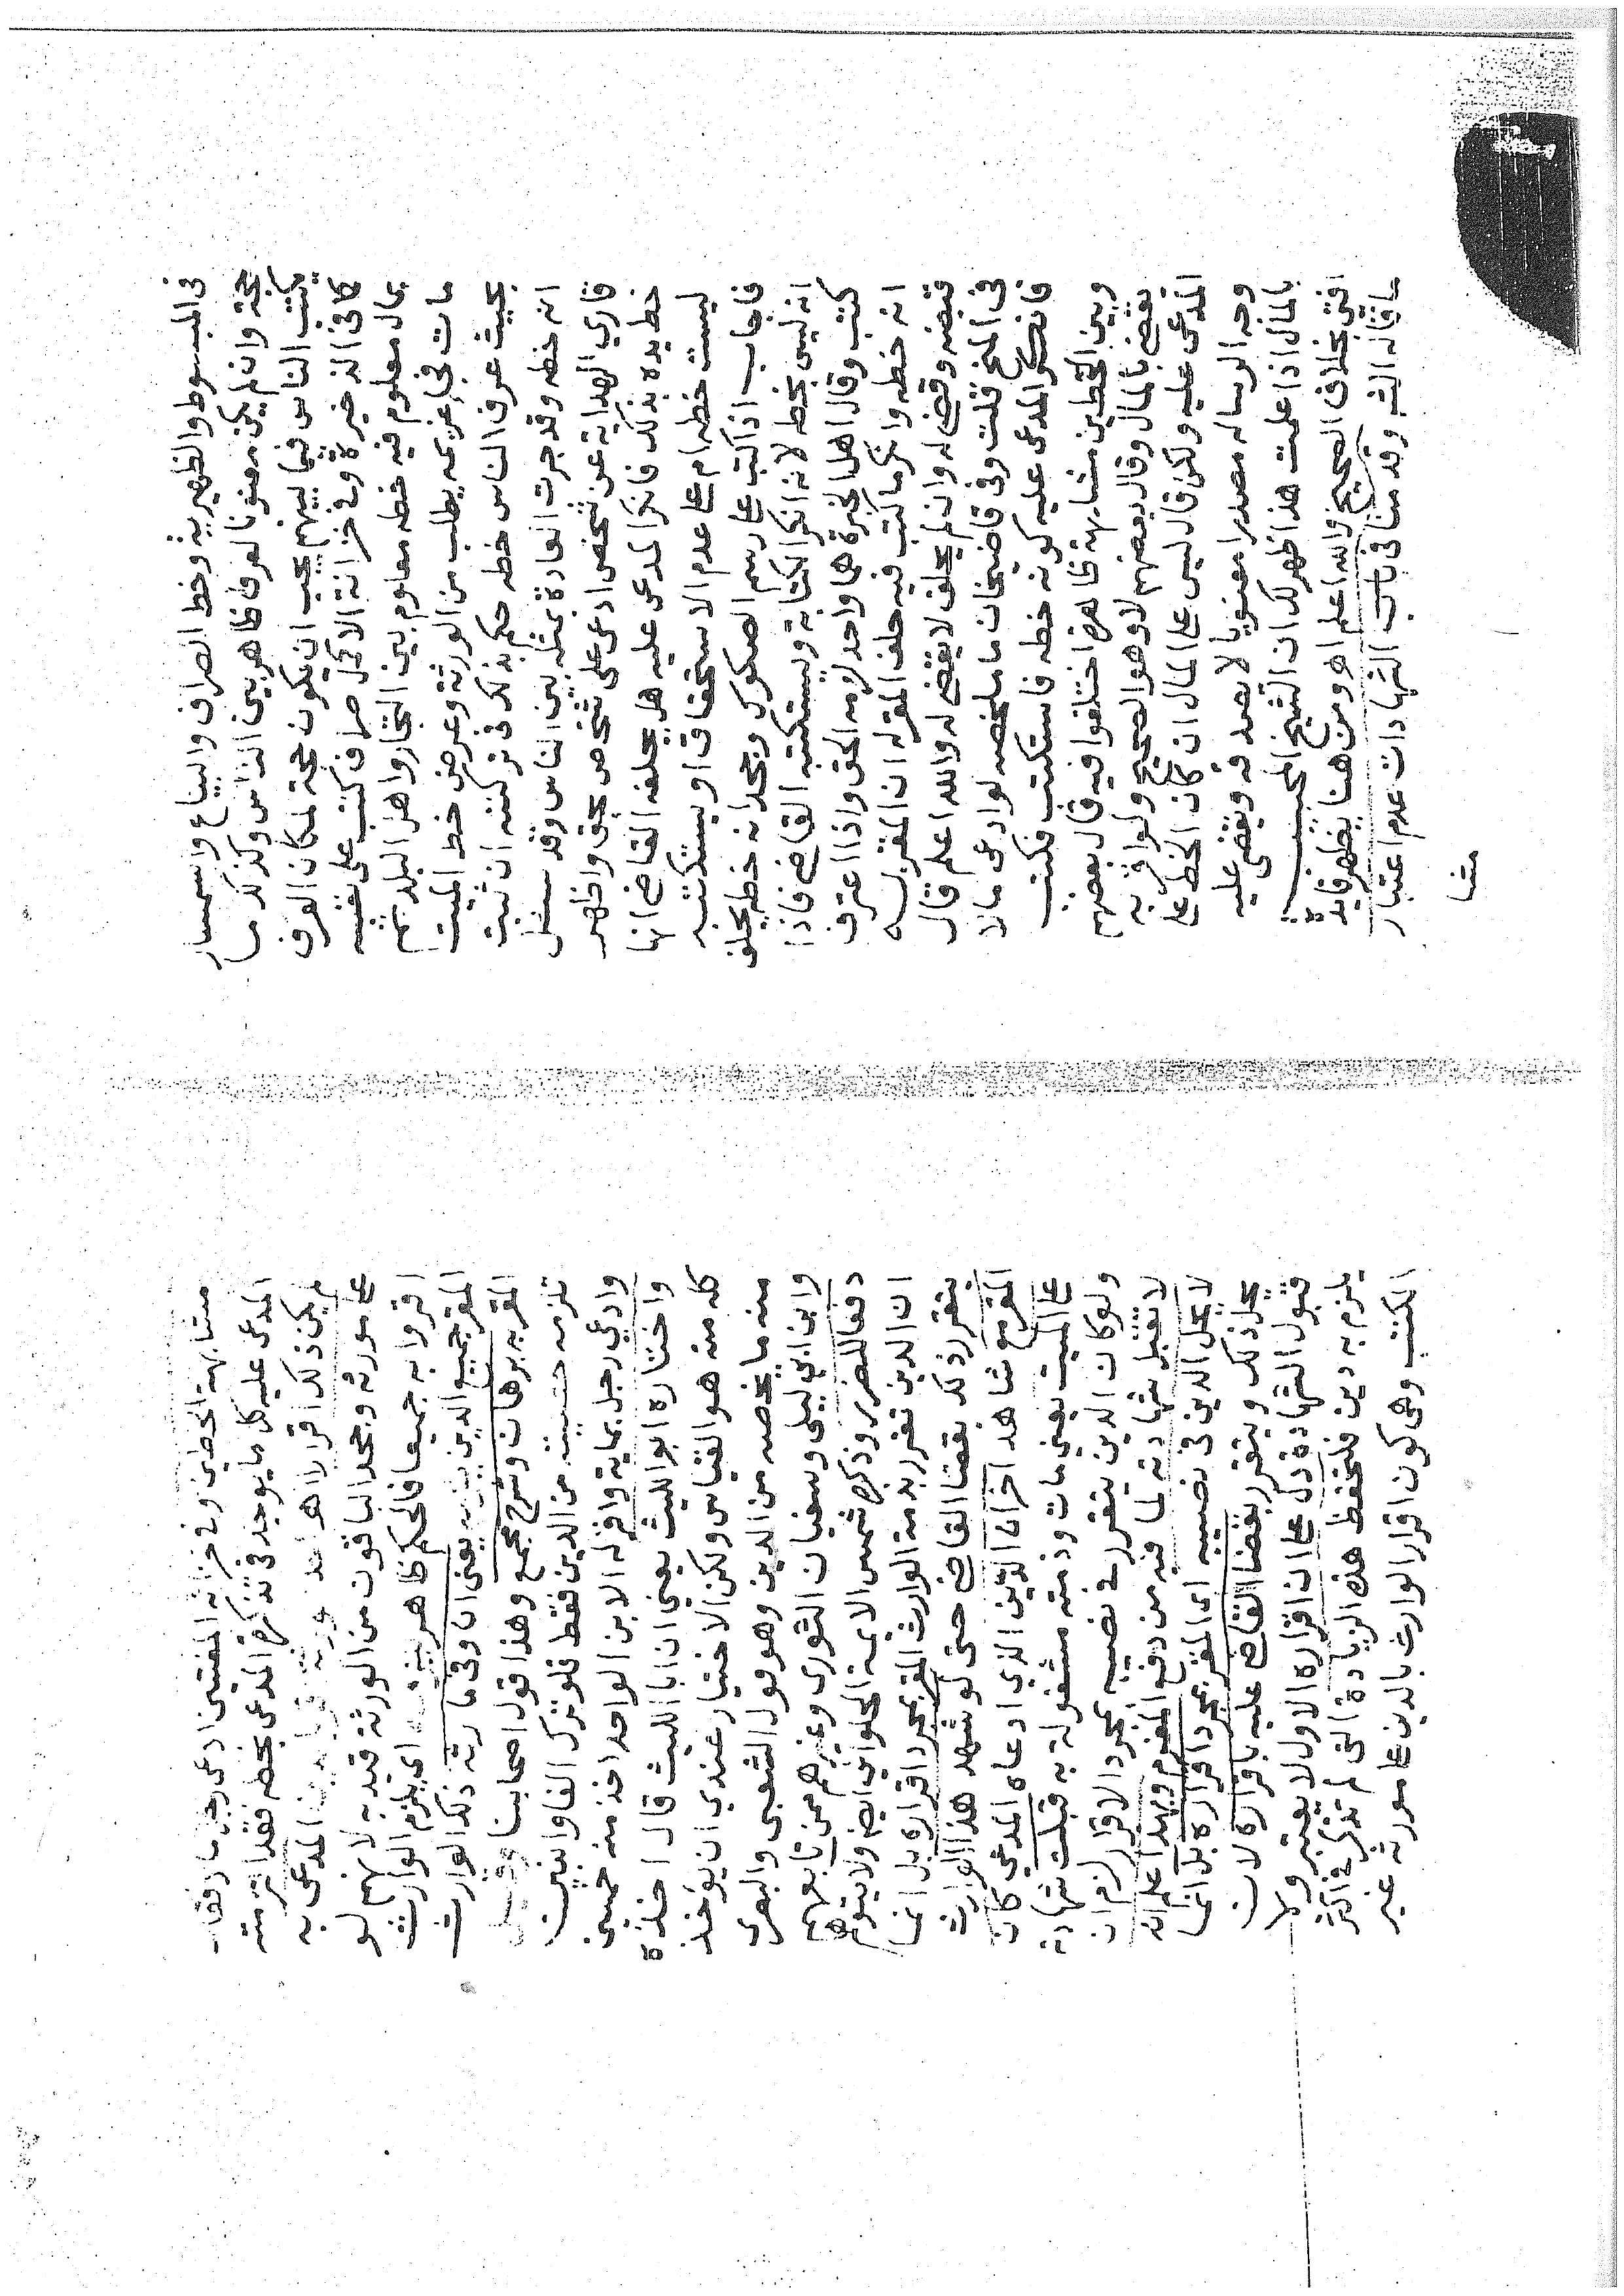 فى المبسوط والظهيرية وخط الصراف والبياع والسمسار
حجة وان لم يكن معنونا لعرف ظاهر بين الناس وكذلك ما
يكتب الناس فيما بينهم يجب ان يكون حجة لمكان العرف
كما فى الذخيرة وفى خزانة الاكمل صراف كتب على نفسه
بمال معلوم فيه خطه معلوم بين التجار واهل البلد ثم
مات فجا غريمه يطلب من الورثة وعرض خط الميت
بحيث عرف الناس خطه حكم بذلك فى تركته ان ثبت
انه خطه وقد جرت العادة بمثله بين الناس وقد سئل
قارى الهداية عن شخص ادعى على شخص بحق واظهر
خط يده بذلك فانكر المدعى عليه هل يحلفه القاضى انها
ليست خطه ام على عدم الاستحقاق او يستكتبه
فاجاب اذا كتب على رسم الصكوك وجحد انه خطه يحلف
انه ليس بخطه لانه انكر الكتابة ويستكتبه القاضى فاذا
كتب وقال اهل الخبرة هما واحد لزمه الحق واذا اعترف
انه خطه وانكر ما كتب فيه حلف المقر له ان المقر به
قبضه وقضى له وان لم يحلف لا يقضى له والله اعلم قال
فى المنح قلت وفى قاضيخان ما ملخصه لو ادعى مالا
فانكر المدعى عليه كونه خطه فاستكتب فكتب
وبين الخطين مشابهة ظاهرة اختلفوا فيه قال بعضهم
يقضى بالمال وقال بعضهم لا وهو الصحيح ولو اقر به
المدعى عليه ولكن قال ليس على المال ان كان الخط على
وجه الرسالة مصدرا معنونا لا يصدق ويقضى عليه
بالمال اذا علمت هذا ظهر لك ان الشيخ المجيب
افتى بخلاف الصحيح والله اعلم اهـ ومن هنا يظهر فايدة
ما قاله الشـ وقدمنا فى كتاب الشهادات عدم اعتبار
مشا
مشابهة الخطين وفى خزانة المفتين ادعى رجل مالا فقال
المدعى عليه كل ما يوجد فى تذكرة المدعى بخطه فقد التزمته
لم يكن ذلك اقرارا اهـ المدعى به
على مورثه وجحد الباقون من الورثة قيد به لانهم لو
اقروا به جميعا فالحكم ظاهر اى يلزم الوارث
المقر جميع الدين يعنى ان وفى ما رثه ذلك الوارث
المقر به برهان وشرح مجمع وهذا قول اصحابنا وقيل
تلزمه حصته من الدين فقط فلو ترك الفا وابنين
وادعى رجل بماية واقر له الابن الواحد اخذ منه خمسين
واختاره ابو الليث يعنى ان ابا الليث قال اخذه
كله منه هو القياس ولكن الاختيار عندى ان يؤخذ
منه ما يخصه من الدين وهو قول الشعبى والبصرى
وابن ابى ليلى وسفيان الثورى وغيرهم ممن تابعهم
دفعا للضرر وذكر شمس الايمة الحلوانى ايضا ولا يتوهم
ان الدين تقرر بذمة الوارث المقر بمجرد اقراره بل انما
يتقرر ذلك بقضا القاضى حتى لو شهد هذا الوارث
المقر مع شاهد اخر ان الدين الذى ادعاه المدعى كان
على الميت يعنى مات وذمته مشغولة به قبلت شهادة
ولو كان الدين يتقرر فى نصيبه بمجرد الاقرار لزم ان
لا تقبل شهادته لما فيه من دفع المغرم وبهذا علم انه
لا يحل الدين فى نصيبه اى المقر بمجرد اقراره بل انما
يحل ذلك ويتقرر بقضا القاضى عليه باقراره لان
قبول الشهادة دل على ان اقراره الاول لا يعتبر ولا
يلزم به دين فلتحفظ هذه الزيادة التى لم تذكر فى اكثر
الكتب وهى كون اقرار الوارث بالدين على مورثه غير